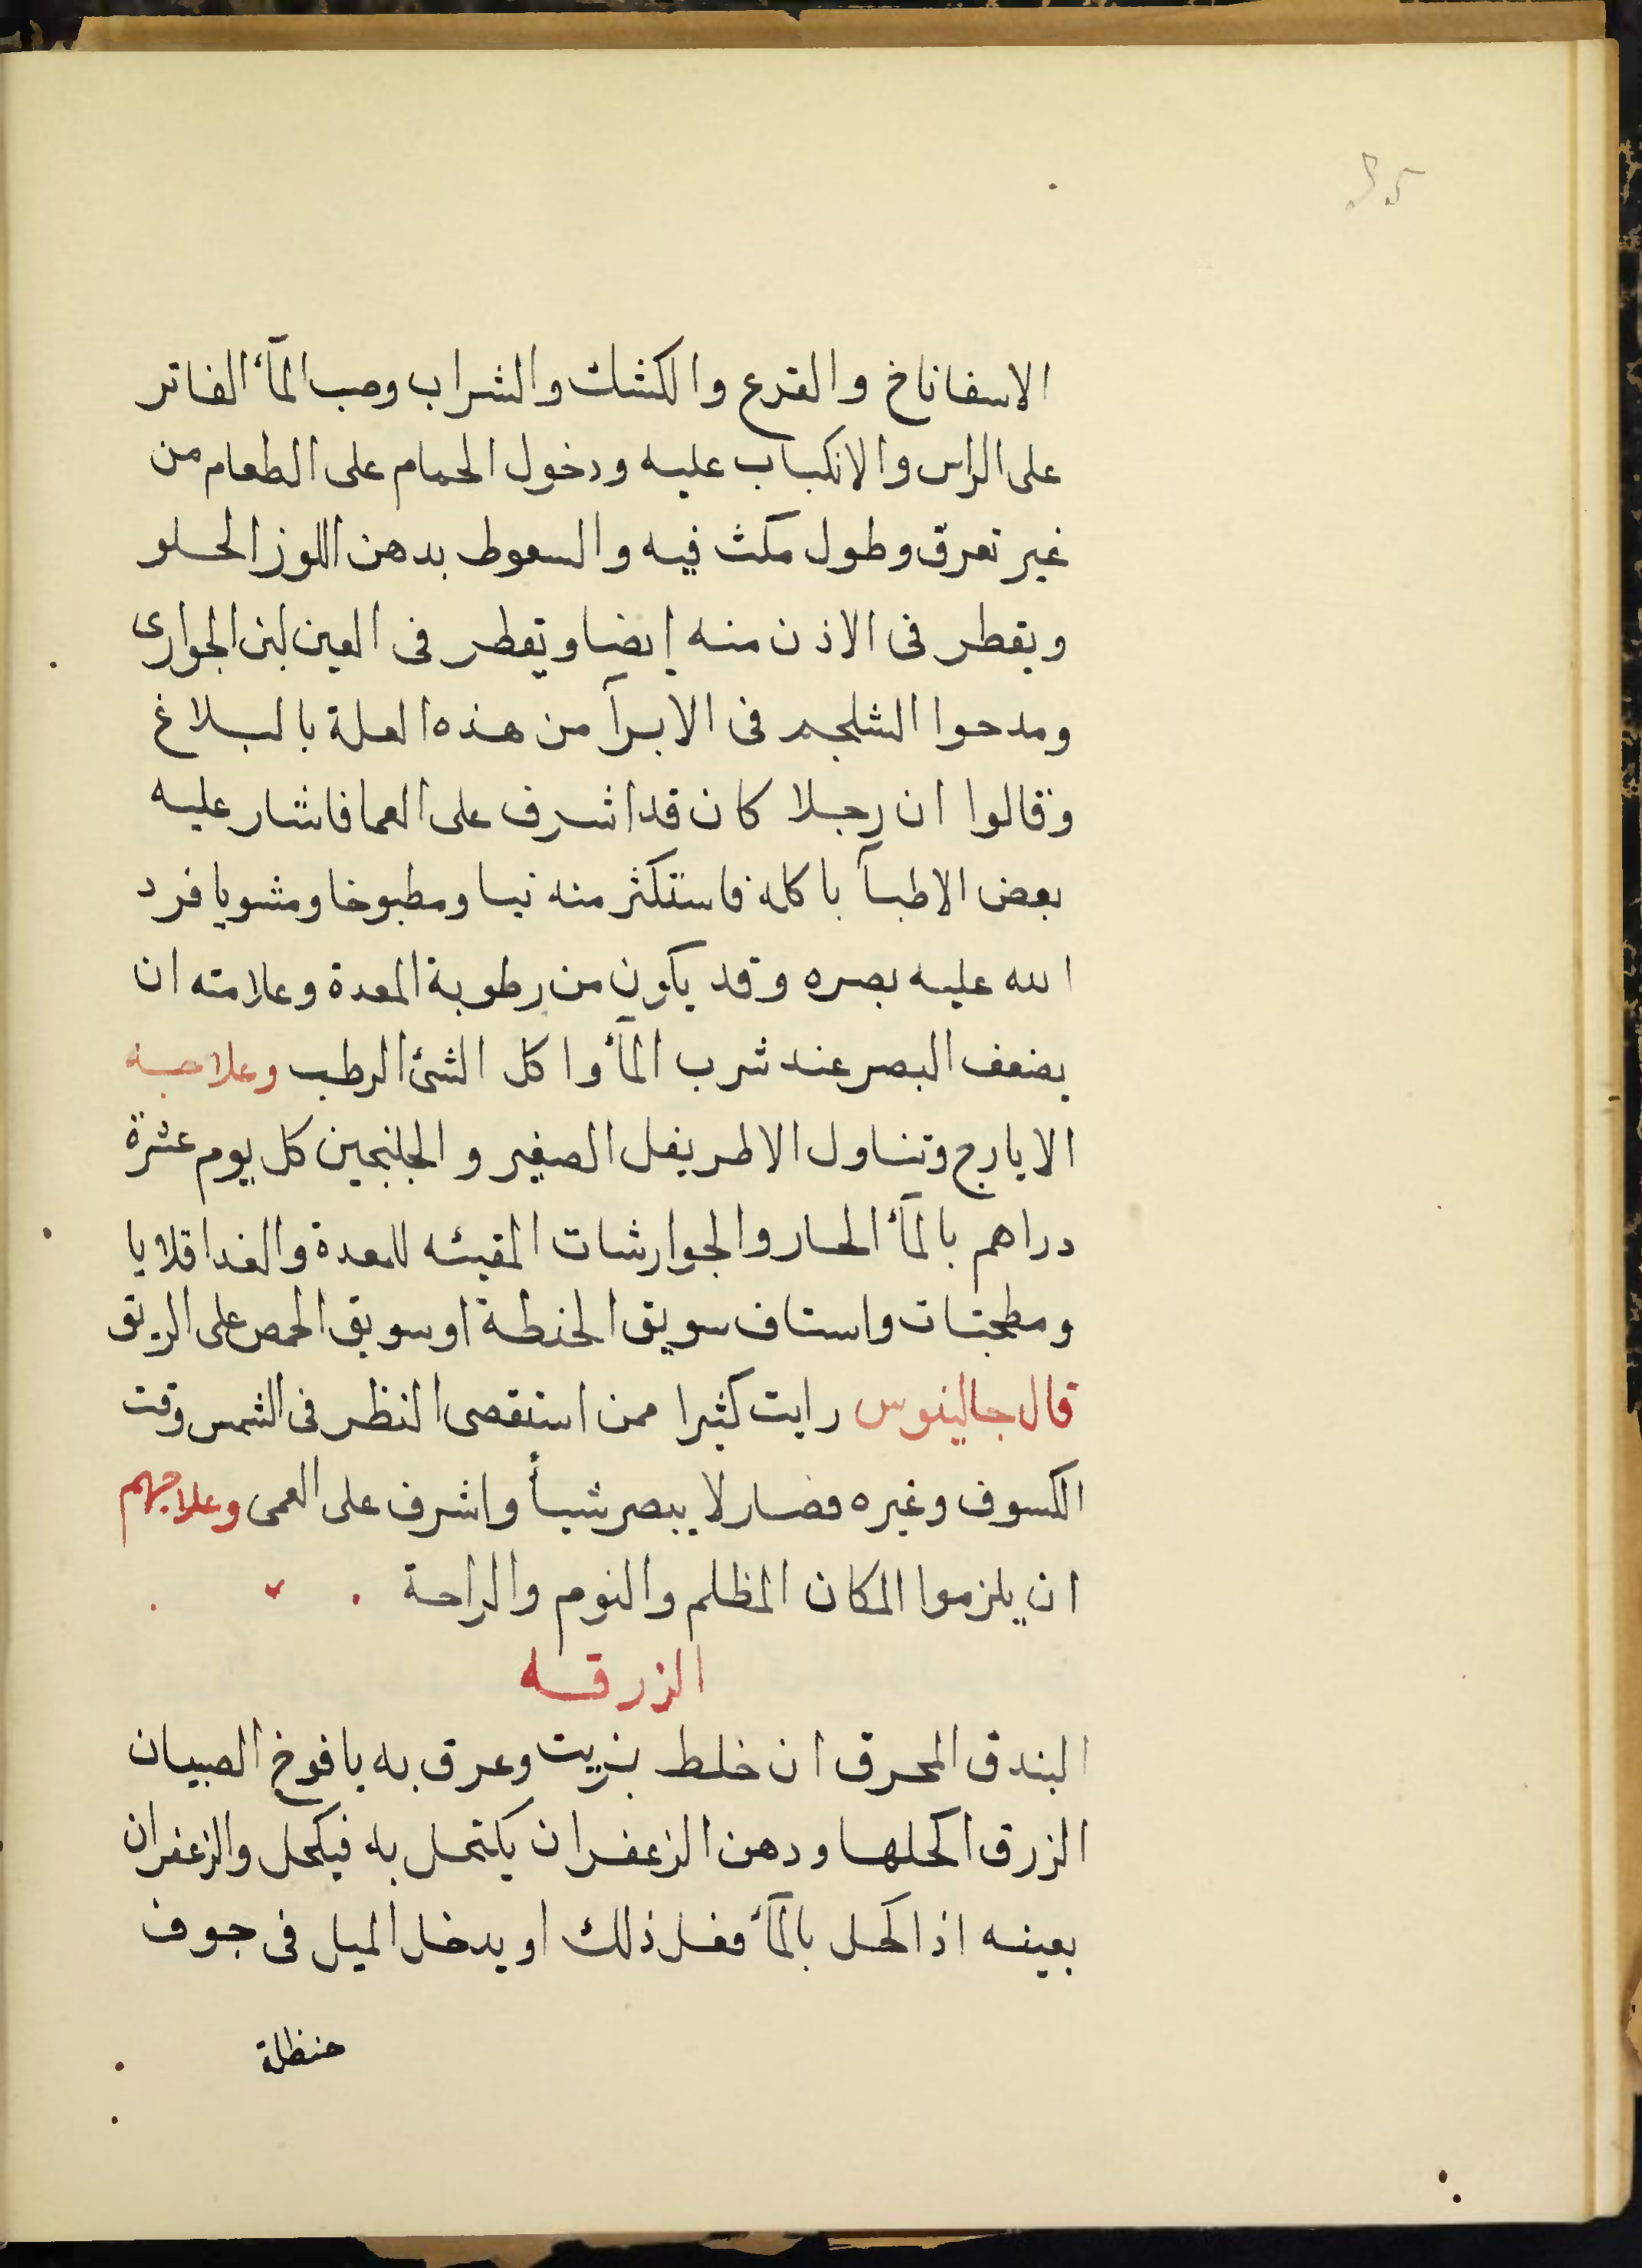 الاسفاناخ والقرع والكشك والشراب وصب المآء الفاتر
على الراس والانكباب عليه ودخول الحمام على الطعام من
غير تعرق وطول مكث فيه والسعوط بدهن اللوز الحلو
ويقطر فى الاذن منه ايضا ويقطر فى العين لبن الجوارى
ومدحوا الشلجم فى الابرآ من هذه العلة بالبلاغ
وقالوا ان رجلا كان قد اشرف على العما فاشار عليه
بعض الاطبآ باكله فاستكثر منه نيا ومطبوخا ومشويا فرد
الله عليه بصره وقد يكون من رطوبة المعدة وعلامته ان
يضعف البصر عند شرب المآء واكل الشئ الرطب وعلاجه
الايارج وتناول الاطريفل الصغير والجلنجين كل يوم عشرة
دراهم بالمآء الحار والجوارشات المقيئه للمعدة والغدا قلايا
ومطجنات واستاف سويق الحنطة او سويق الحمص على الريق
قال جالينوس رايت كثيرا ممن استقصى النظر فى الشمس وقت
الكسوف وغيره فصار لا يبصر شيأ واشرف على العمى وعلاجهم
ان يلزموا المكان المظلم والنوم والراحة
الزرقه
البندق المحرق ان خلط بزيت وعرق به يافوخ الصبيان
الزرق اكحلها ودهن الزعفران يكتحل به فيكحل والزعفران
بعينه اذا كحل بالمآء فعل ذلك او يدخل الميل فى جوف
حنظلة